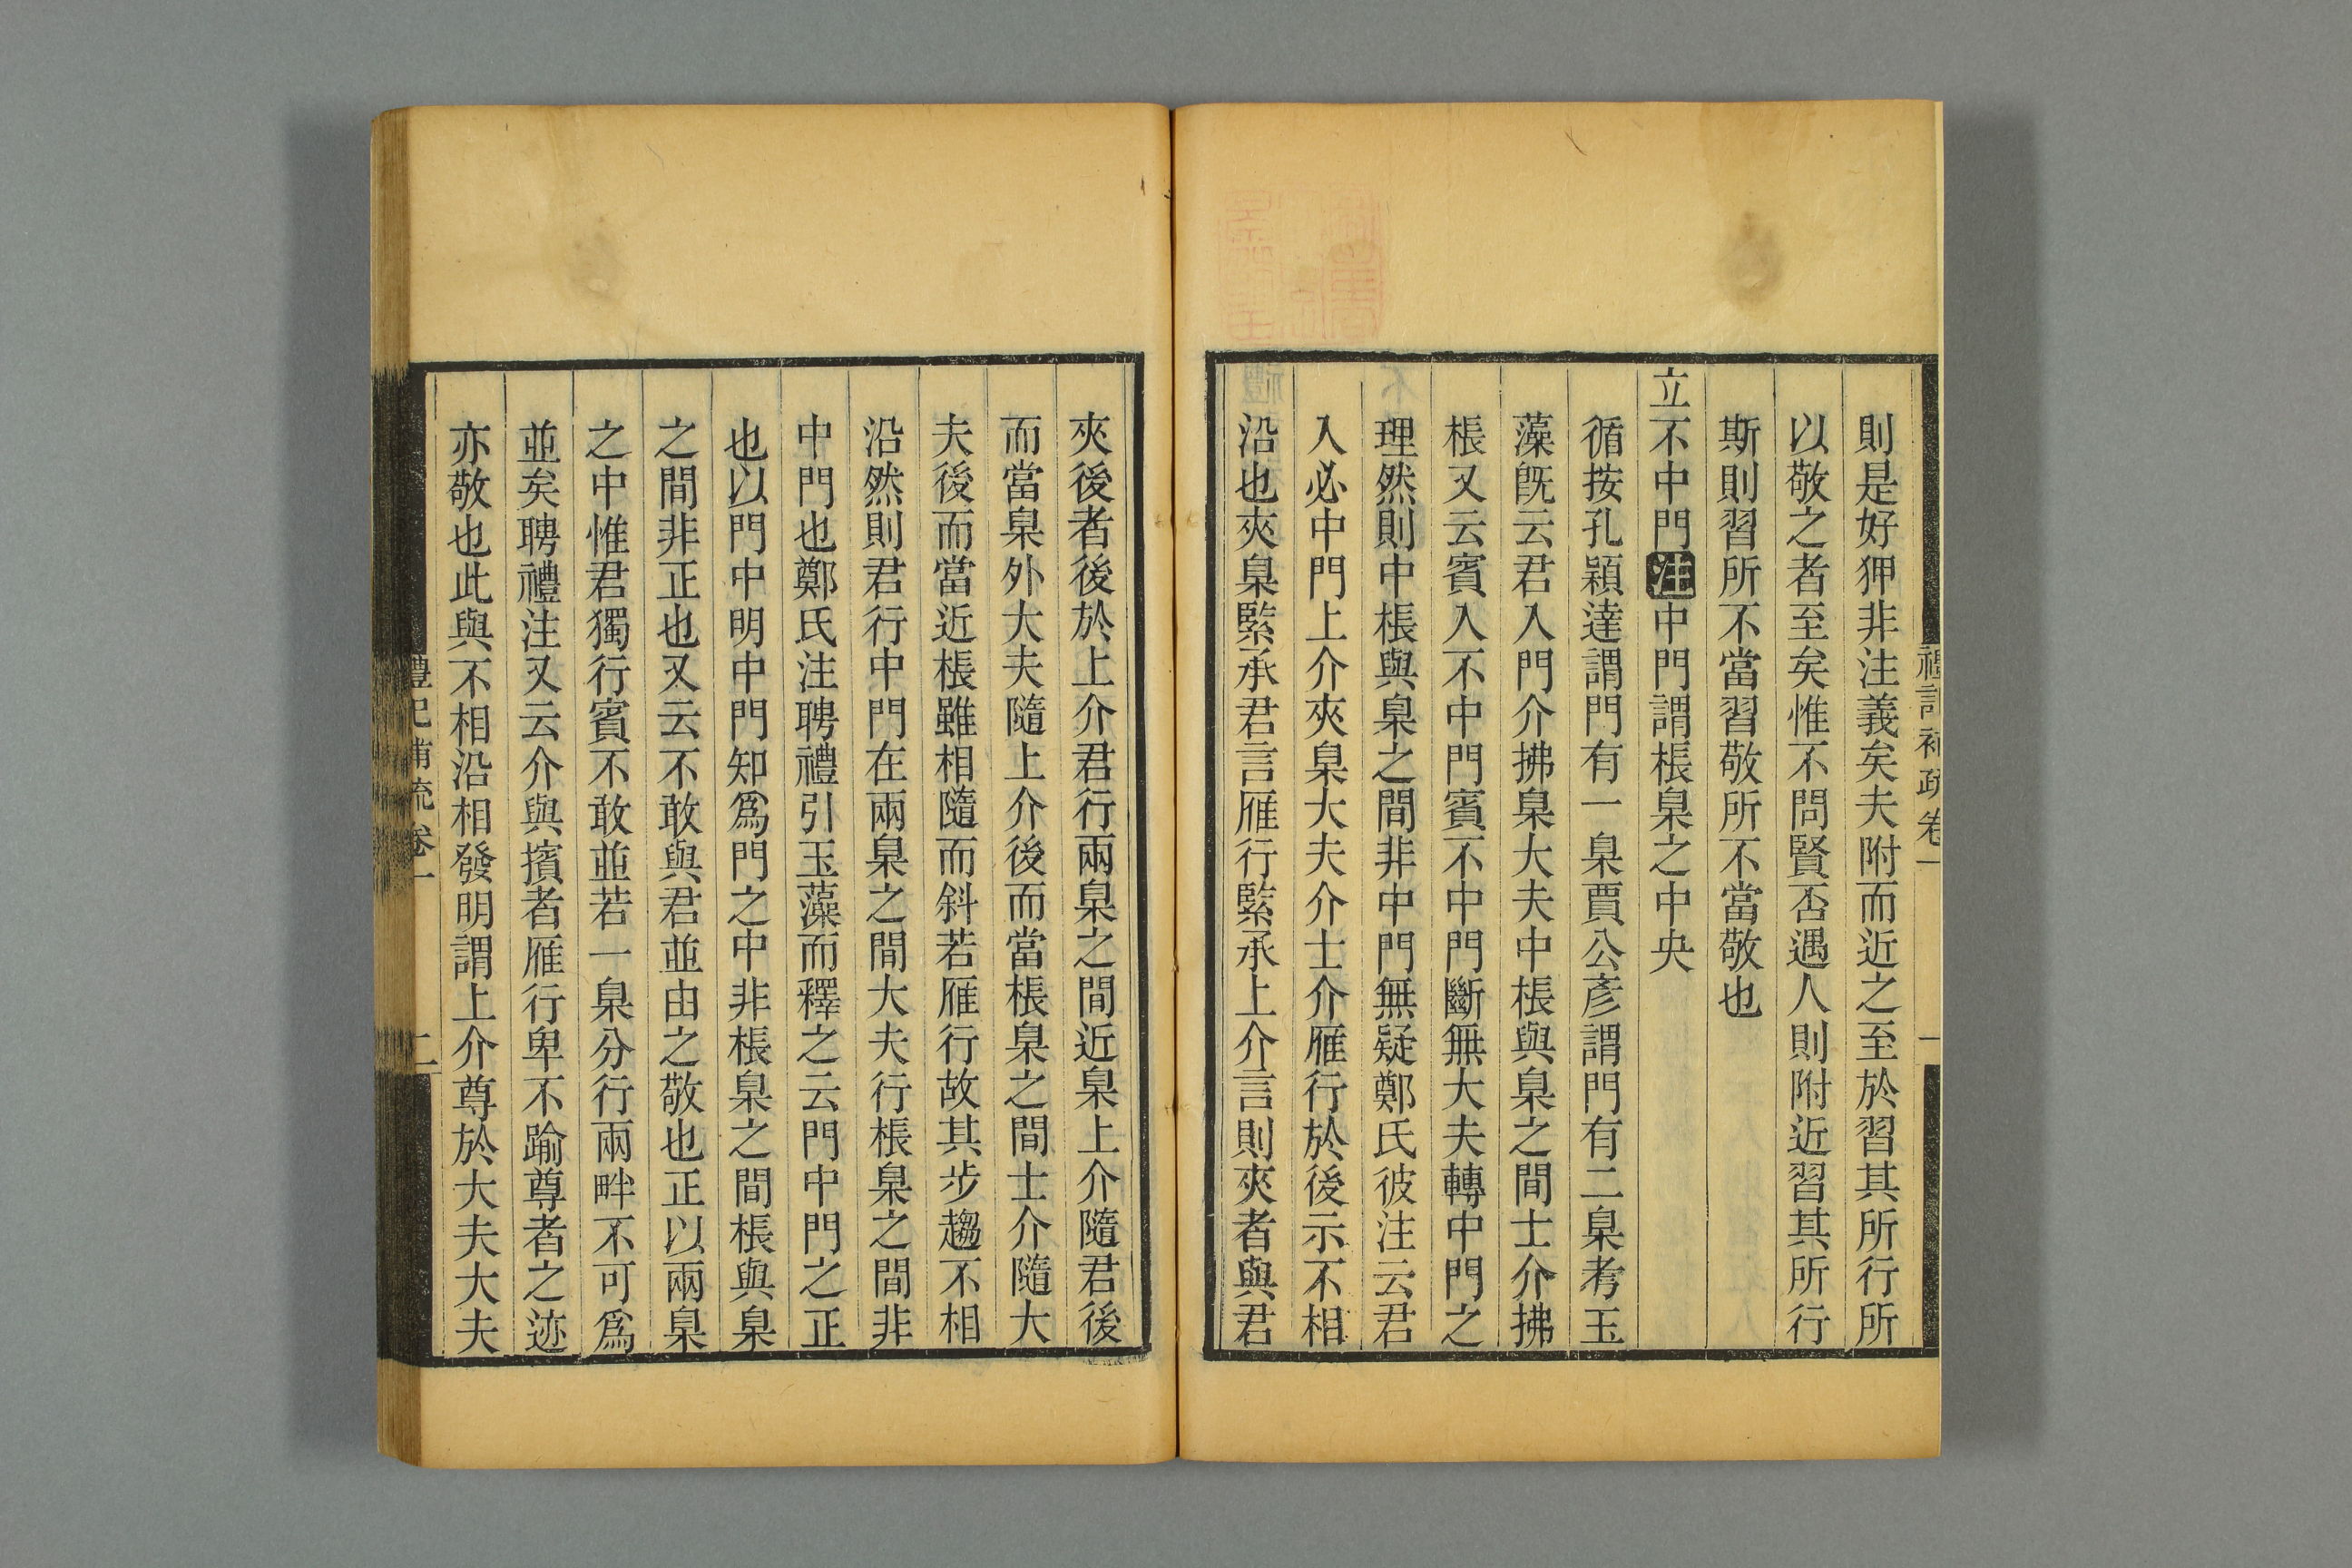 禮記補疏卷一
一
則是好狎非注義矣夫附而近之至於習其所行所
以敬之者至矣惟不問賢否遇人則附近習其所行
斯則習所不當習敬所不當敬也
立不中門注中門謂棖臬之中央
循按孔穎達謂門有一臬賈公彥謂門有二臬考玉
藻旣云君入門介拂臬大夫中棖與臬之間士介拂
棖又云賓入不中門賓不中門斷無大夫轉中門之
理然則中棖與臬之間非中門無疑鄭氏彼注云君
入必中門上介夾臬大夫介士介雁行於後示不相
沿也夾臬緊承君言雁行緊承上介言則夾者與君
夾後者後於上介君行兩臬之間近臬上介隨君後
而當臬外大夫隨上介後而當棖臬之間士介隨大
夫後而當近棖雖相隨而斜若雁行故其步趨不相
沿然則君行中門在兩臬之間大夫行棖臬之間非
中門也鄭氏注聘禮引玉藻而釋之云門中門之正
也以門中明中門知爲門之中非棖臬之間棖與臬
之間非正也又云不敢與君並由之敬也正以兩臬
之中惟君獨行賓不敢並若一臬分行兩畔不可爲
並矣聘禮注又云介與擯者雁行卑不踰尊者之迹
亦敬也此與不相沿相發明謂上介尊於大夫大夫
禮記補疏卷一
二